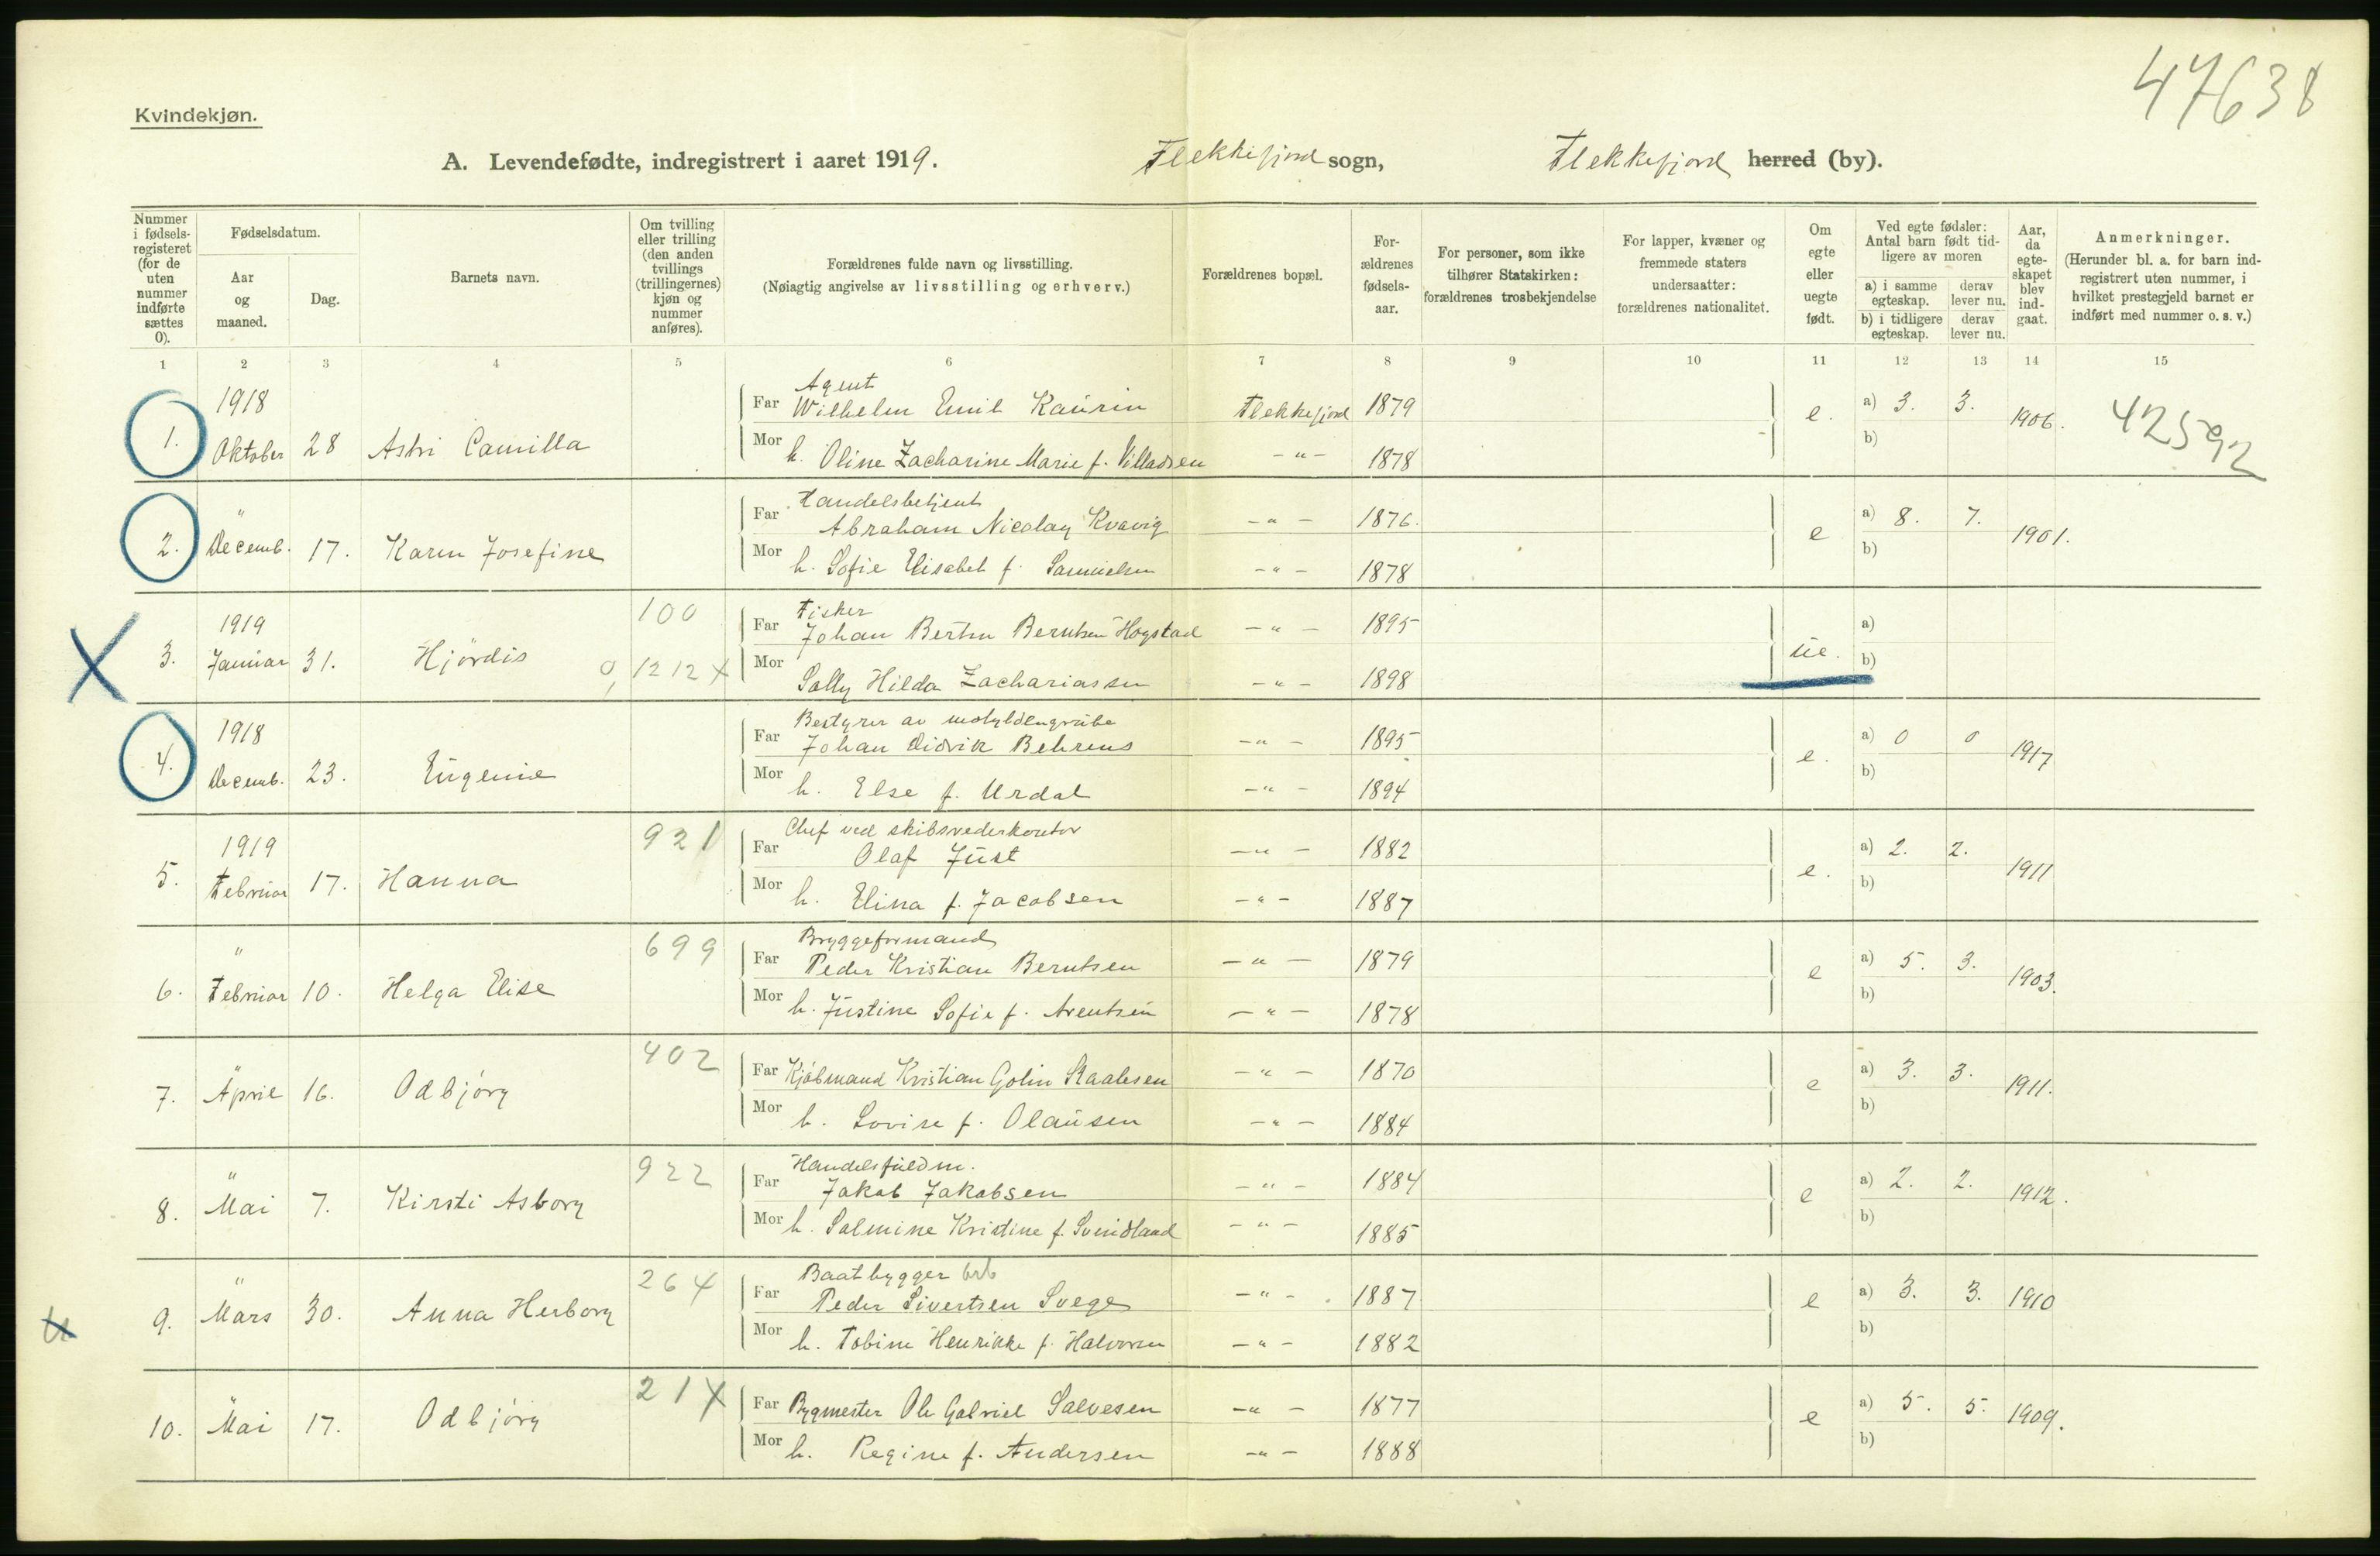 47638
Kvindekjøn.
A. Levendefødte, indregistrert i aaret 1919. Flekkefjord sogn, Flekkefjord herred (by).
Nummer i fødsels-registeret (for de uten nummer indførte sættes 0).
Fødselsdatum.
Aar og maaned.
Dag.
Barnets navn.
Om tvilling eller trilling (den anden tvillings (trillingernes) kjøn og nummer anføres).
Forældrenes fulde navn og livsstilling.
(Nøiagtig angivelse av livsstilling og erhverv.)
Forældrenes bopæl.
For-ældrenes fødsels-aar.
For personer, som ikke tilhører Statskirken: forældrenes trosbekjendelse
For lapper, kvæner og fremmede staters undersaatter: forældrenes nationalitet.
Om egte eller uegte født.
Ved egte fødsler: Antal barn født tid-ligere av moren
a) i samme egteskap. derav lever nu.
b) i tidligere egteskap. derav lever nu.
Aar, da egte-skapet blev ind-gaat.
Anmerkninger.
(Herunder bl. a. for barn ind-registrert uten nummer, i hvilket prestegjeld barnet er indført med nummer o. s. v.)
1 2 3 4 5 6 7 8 9 10 11 12 13 14 15
1918 Agent
Far Wilhelm Emil Kaurin Flekkefjord 1879 e. a) 3. 3. 1906. 42592
1. Oktober 28 Astri Camilla Mor h. Oline Zacharine Marie f. Villadsen -"- 1878 b)
" Handelsbetjent
Far Abraham Nicolay Kvavig -"- 1876. e a) 8. 7. 1901.
2. Decemb. 17. Karen Josefine Mor h. Sofie Elisabet f. Samuelsen -"- 1878 b)
1919 100 Fisker
Far Johan Bertin Berntsen Hogstad -"- 1895 ue. a)
3. Januar 31. Hjördis 0, 1212 X Mor Sally Hilda Zachariassen -"- 1898 b)
1918 Bestyrer av molybdengrube
Far Johan Didrik Behrens -"- 1895 e. a) 0 0 1917
4. Decemb. 23. Eugenie Mor h. Else f. Urdal -"- 1894 b)
1919 921 Chef ved skibsrederkontor
Far Olaf Just -"- 1882 e. a) 2. 2. 1911
5. Februar 17. Hanna Mor h. Elina f. Jacobsen -"- 1887 b)
" 699 Bryggeformand
Far Peder Kristian Berntsen -"- 1879 e a) 5. 3. 1903.
6. Februar 10. Helga Elise Mor h. Justine Sofie f. Arentsen -"- 1878 b)
" 402
Far Kjøbmand Kristian Golin Staalesen -"- 1870 e a) 3. 3. 1911.
7. April 16. Odbjörg Mor h. Lovise f. Olausen -"- 1884 b)
" 922 Handelsfuldm.
Far Jakob Jakobsen -"- 1884 e a) 2. 2. 1912.
8. Mai 7. Kirsti Asborg Mor h. Salmine Kristine f. Svindland -"- 1885 b)
" 264 Baatbygger
Far Peder Sivertsen Svege -"- 1887 e a) 3. 3. 1910
9. Mars 30. Anna Herborg Mor h. Tobine Henrikke f. Halvorsen -"- 1882 b)
" 21X
Far Bygmester Ole Gabriel Salvesen -"- 1877 e a) 5. 5. 1909.
10. Mai 17. Odbjörg Mor h. Regine f. Andersen -"- 1888 b)